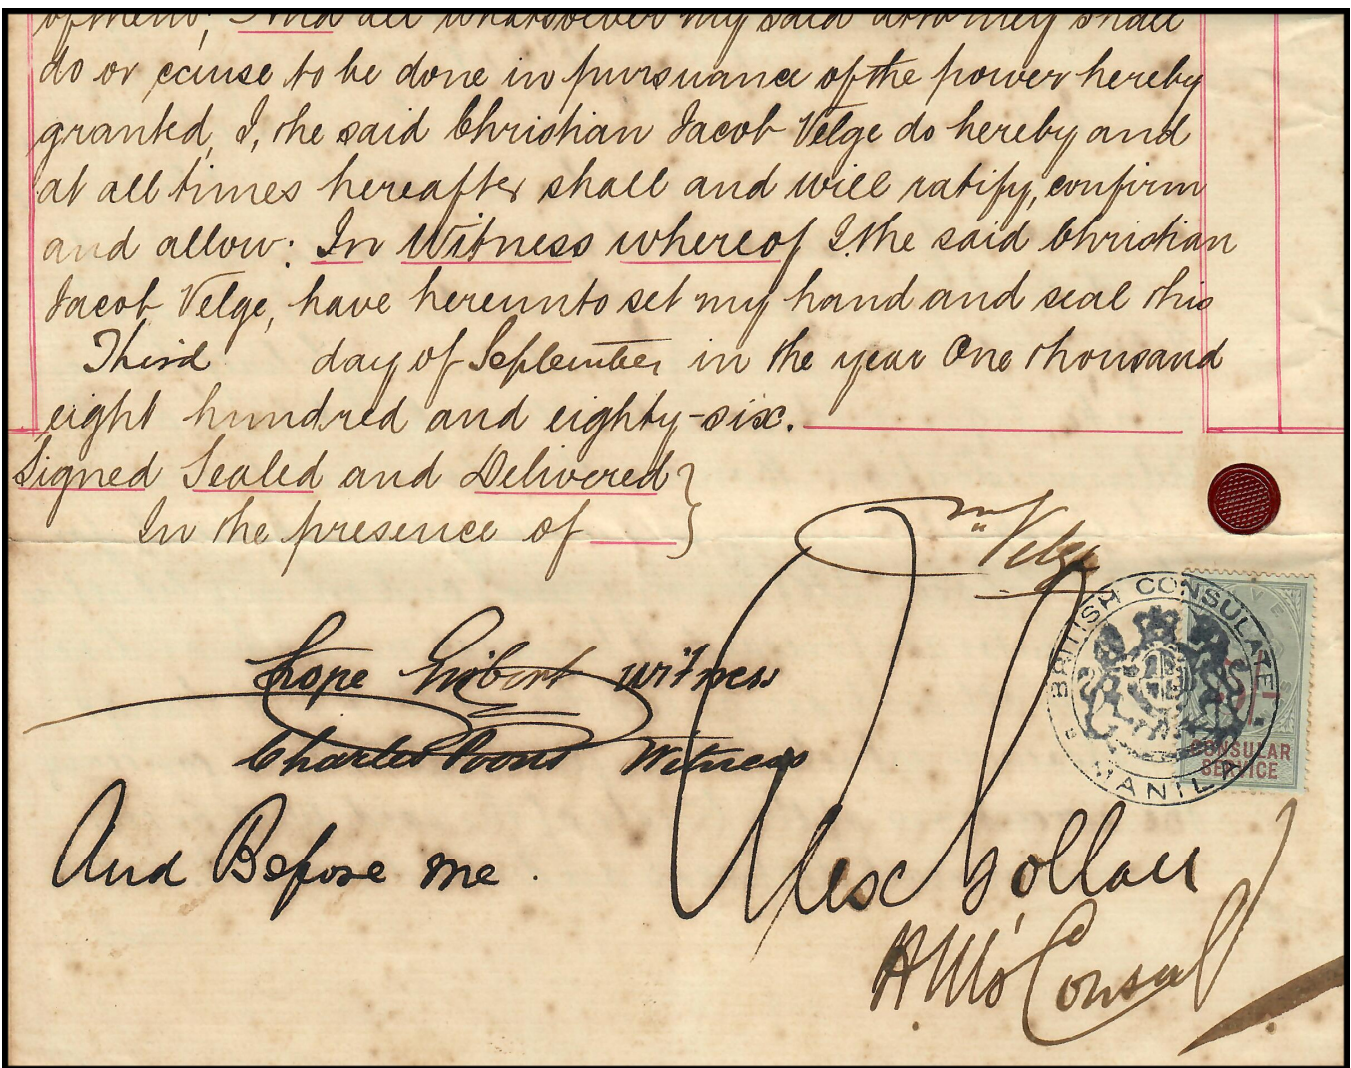 of them; And all whatsoever my said attorney shall
do or cause to be done in pursuance of the power hereby
granted, I, the said Christian Jacob Velge do hereby and
at all times hereafter shall and will ratify, confirm
and allow: In Witness whereof I the said Christian
Jacob Velge, have hereunto set my hand and seal this
Third day of September in the year One thousand
eight hundred and eighty-six.
Signed Sealed and Delivered }
In the presence of
Velge
BRITISH CONSULATE
MANILA
CONSULAR
SERVICE
witness
Charles Witness
And Before me.
Alex Gollan
HM's Consul